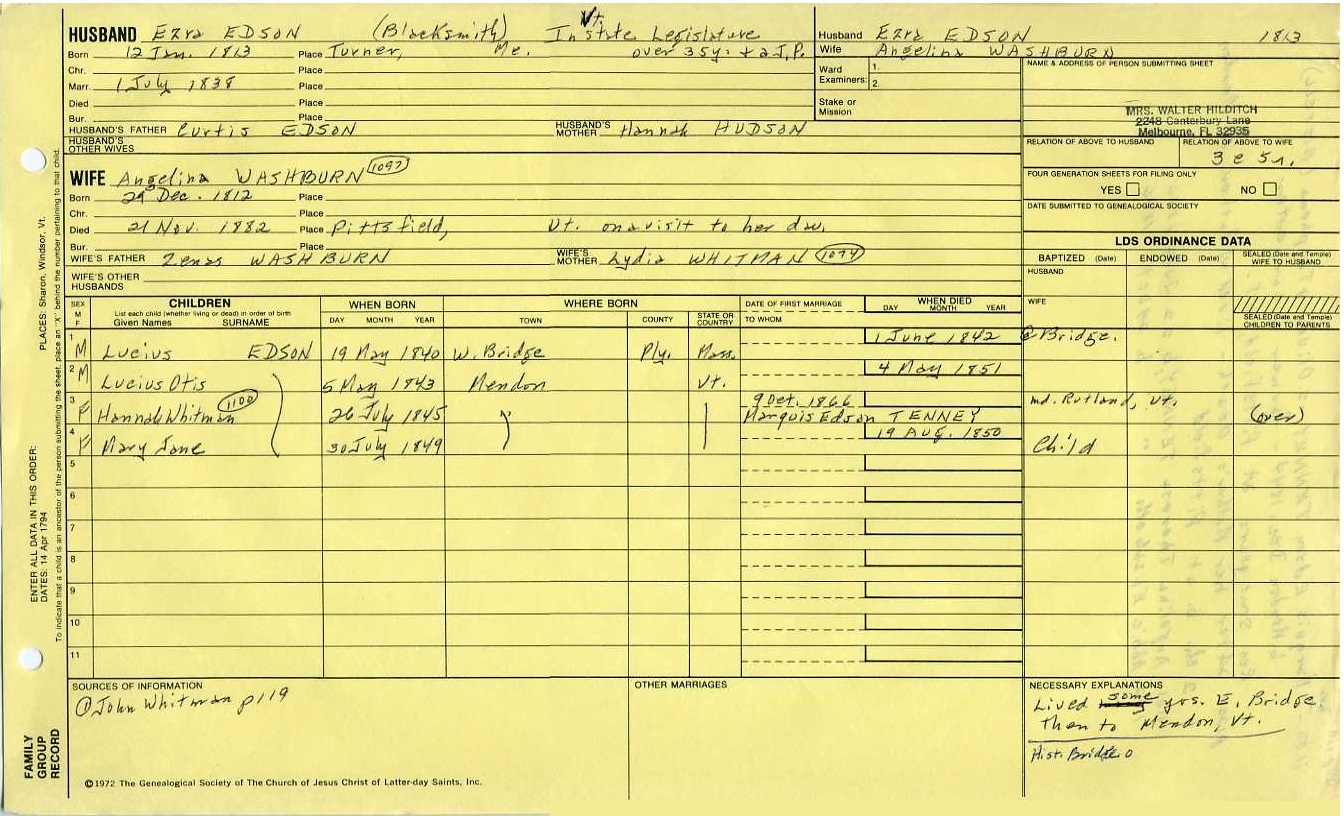 HUSBAND Ezra EDSON (Blacksmith) In Vt. State Legislature
Born 12 Jan. 1813 Place Turner, Me. over 35 yr. + a J.P.
Chr. Place
Marr. 1 July 1838 Place
Died Place
Bur. Place
HUSBAND'S FATHER Curtis EDSON HUSBAND'S MOTHER Hannah HUDSON
HUSBAND'S OTHER WIVES
Husband Ezra EDSON 1813
Wife Angelina WASHBURN
Ward Examiners: 1. 2.
Stake or Mission
NAME & ADDRESS OF PERSON SUBMITTING SHEET
MRS. WALTER HILDITCH
2248 Canterbury Lane
Melbourne, FL 32935
RELATION OF ABOVE TO HUSBAND RELATION OF ABOVE TO WIFE
3 c 5 r.
FOUR GENERATION SHEETS FOR FILING ONLY
YES NO
DATE SUBMITTED TO GENEALOGICAL SOCIETY
WIFE Angelina WASHBURN 1097
Born 29 Dec. 1812 Place
Chr. Place
Died 21 Nov. 1882 Place Pittsfield, Vt. on a visit to her dau.
Bur. Place
WIFE'S FATHER Zenas WASHBURN WIFE'S MOTHER Lydia WHITMAN 1074
WIFE'S OTHER HUSBANDS
LDS ORDINANCE DATA
BAPTIZED (Date) ENDOWED (Date) SEALED (Date and Temple) WIFE TO HUSBAND
HUSBAND
WIFE
SEALED (Date and Temple) CHILDREN TO PARENTS
SEX M F
CHILDREN
List each child (whether living or dead) in order of birth
Given Names SURNAME
WHEN BORN
DAY MONTH YEAR
WHERE BORN
TOWN COUNTY STATE OR COUNTRY
DATE OF FIRST MARRIAGE
TO WHOM
WHEN DIED
DAY MONTH YEAR
1 M Lucius EDSON 19 May 1840 W. Bridge Ply. Mass. 1 June 1842 @Bridge.
2 M Lucius Otis 5 May 1843 Mendon Vt. 4 May 1851
3 F Hannah Whitman 1100 26 July 1845 9 Oct. 1866 Marquis Edson TENNEY md. Rutland, Vt. (over)
4 F Mary Jane 30 July 1849 19 AUG. 1850 Child
5
6
7
8
9
10
11
SOURCES OF INFORMATION
@John Whitman p119
OTHER MARRIAGES
NECESSARY EXPLANATIONS
Lived some yrs. E. Bridge
then to Mendon, Vt.
Hist. Bridge
©1972 The Genealogical Society of The Church of Jesus Christ of Latter-day Saints, Inc.
FAMILY GROUP RECORD
ENTER ALL DATA IN THIS ORDER:
DATES: 14 Apr 1794
PLACES: Sharon, Windsor, Vt.
To indicate that a child is an ancestor of the person submitting the sheet, place an "X" behind the number pertaining to that child.